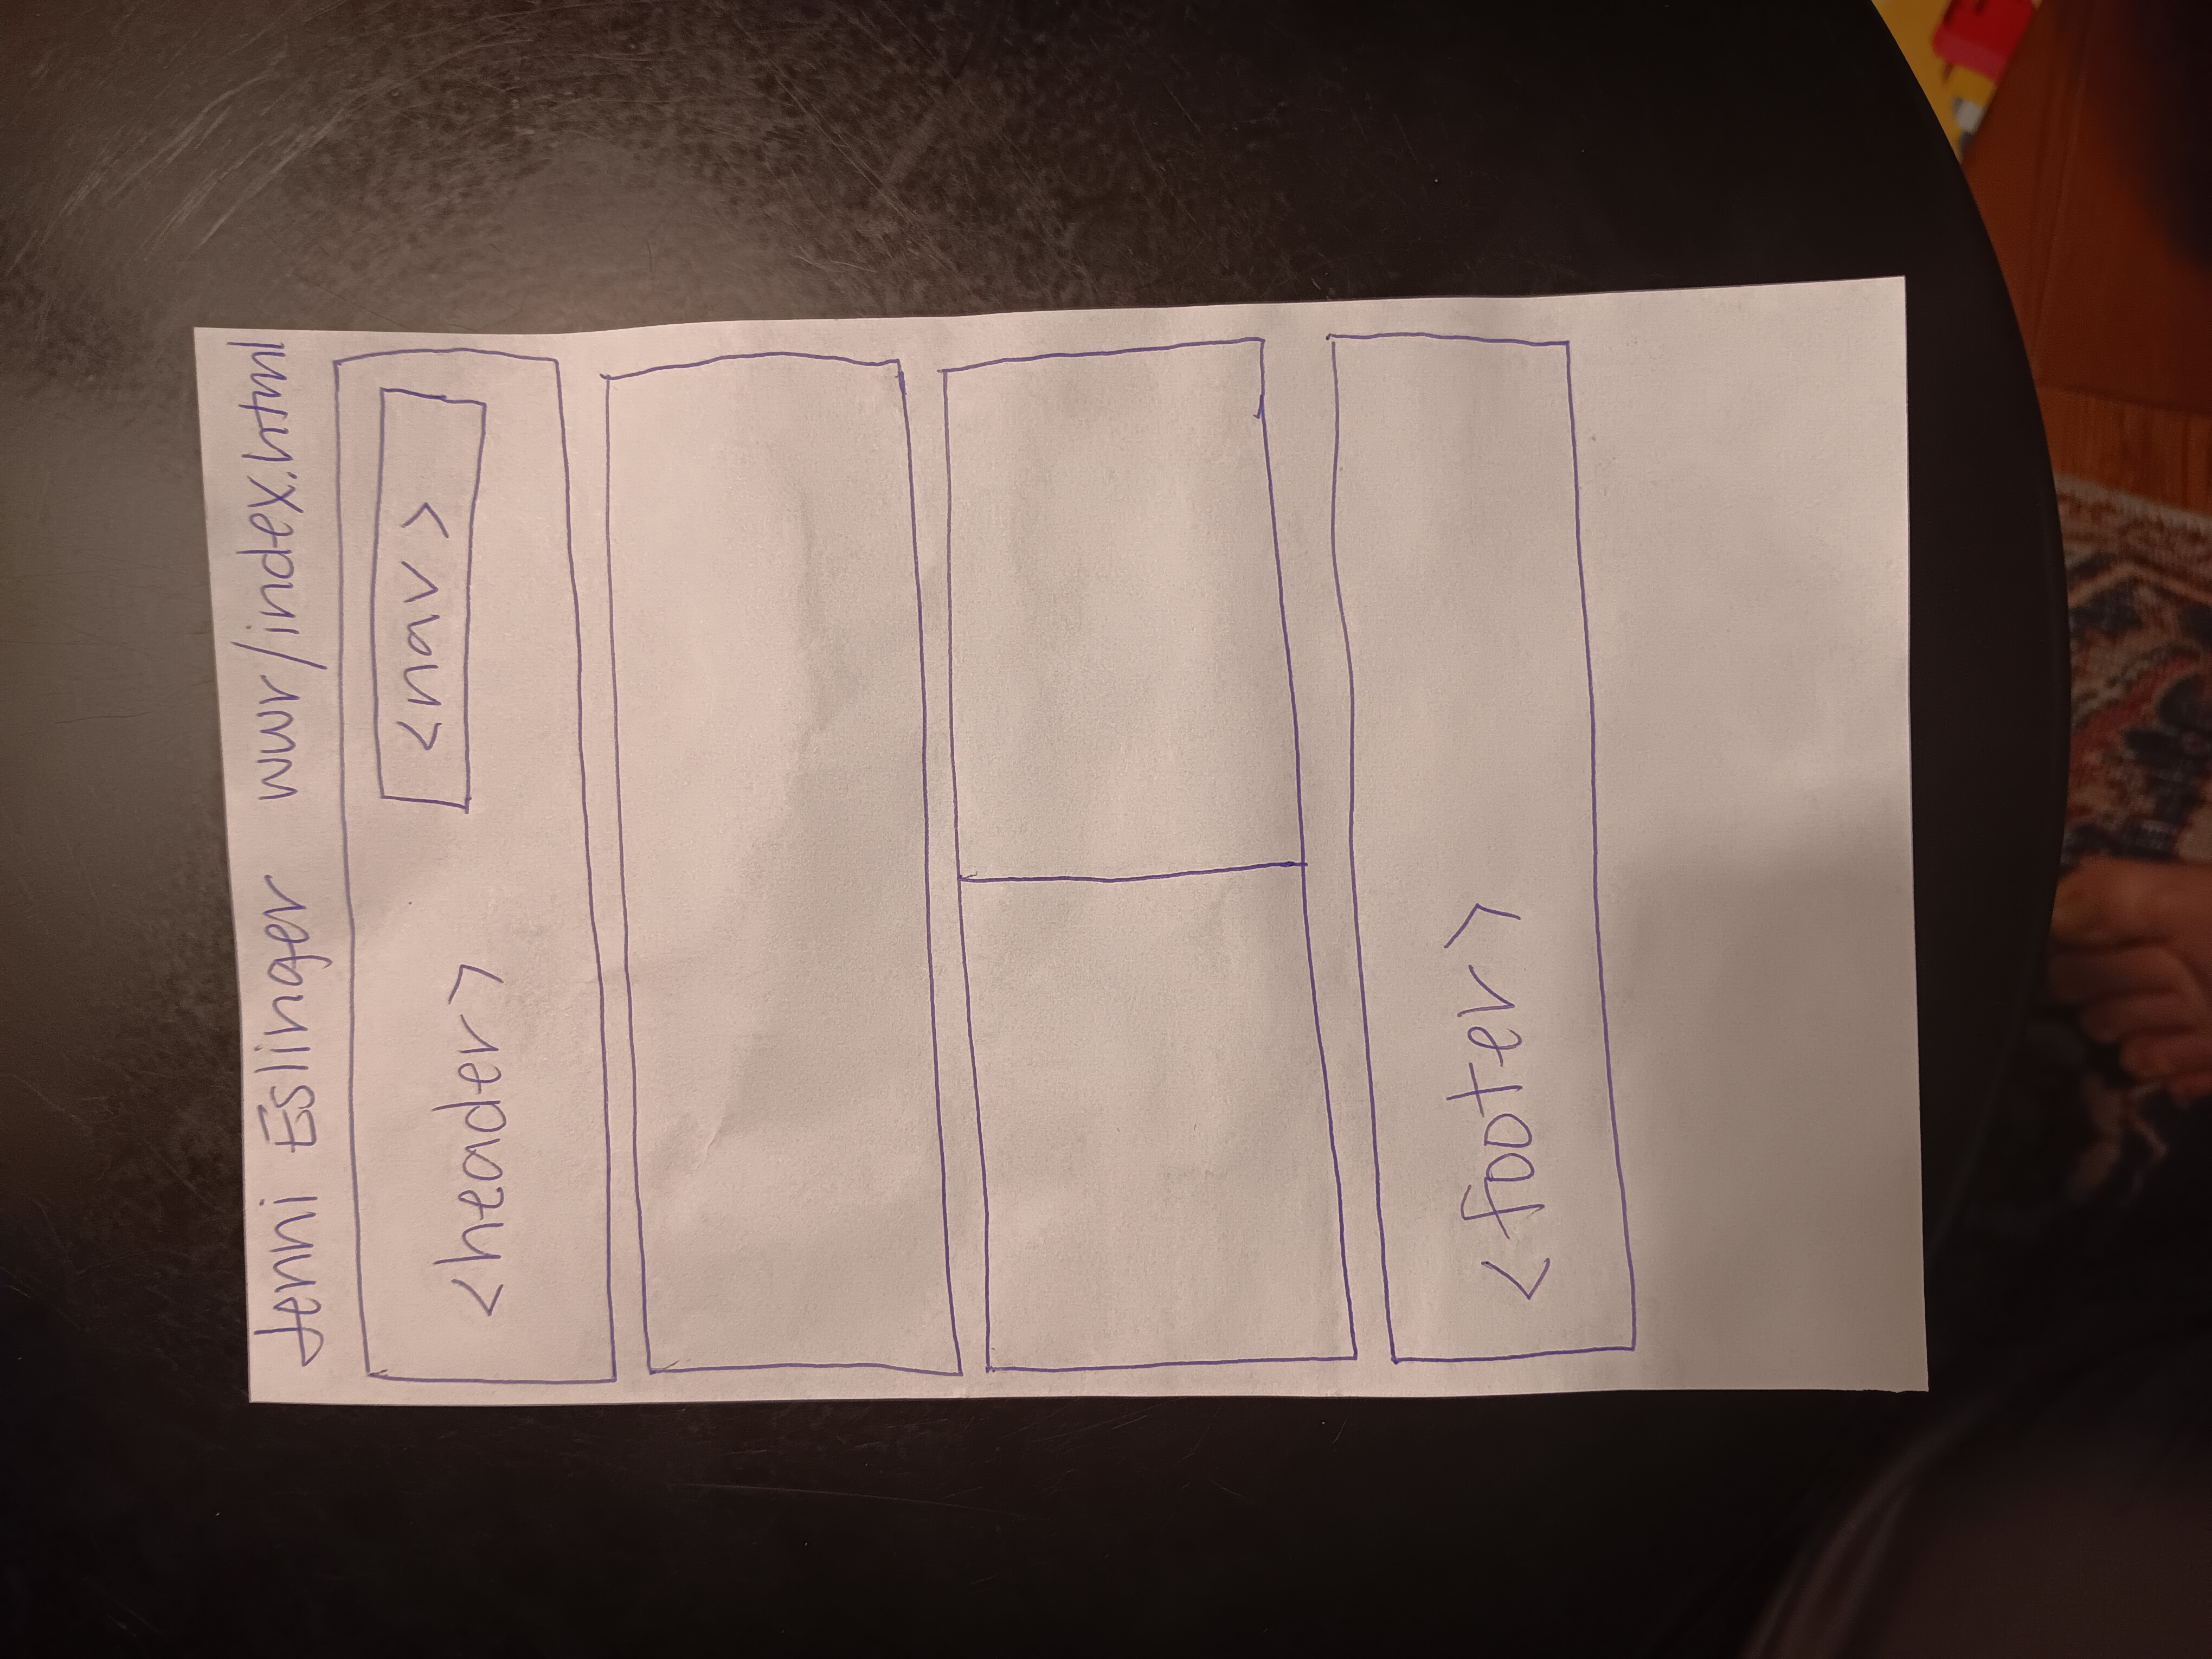 Jenni Eslinger wwr/index.html
<nav>
<header>
<footer>